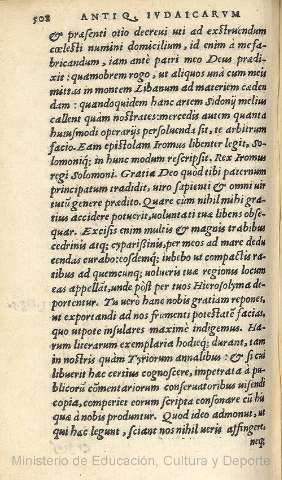 508 ANTIQ. IVDAICARVM
& præsenti otio decreui uti ad exstruendum
cœlesti numini domicilium, id enim à me fa-
bricandum, iam antè patri meo Deus prædi-
xit: quamobrem rogo, ut aliquos unà cum meis
mittas in montem Libanum ad materiem cæden
dam: quandoquidem hanc artem Sidonij melius
callent quàm nostrates: mercedis autem quanta
huiusmodi operarijs persoluenda sit, te arbitrum
facio. Eam epistolam Iromus libenter legit, So-
lomoniq; in hunc modum rescripsit. Rex Iromus
regi Solomoni. Gratia Deo quod tibi paternum
principatum tradidit, uiro sapienti & omni uir
tutū genere prædito. Quare cùm nihil mihi gra-
tius accidere potuerit, uoluntati tuæ libens obse-
quar. Excisis enim multis & magnis trabibus
cedrinis atq; cyparissinis, per meos ad mare dedu
cendas curabo: eosdemq; iubebo ut compactis ra-
tibus ad quemcunq; uolueris tuæ regionis locum
eas appellāt, unde pòst per tuos Hierosolyma de-
portentur. Tu uerò hanc nobis gratiam repones,
ut exportandi ad nos frumēti potestatē facias,
quo utpote insulares maximè indigemus. Ha-
rum literarum exemplaria hodieq; durant, tam
in nostris quàm Tyriorum annalibus: & si cui
libuerit hæc certius cognoscere, impetrata à pu-
blicorū cōmentariorum conseruatoribus uisendi
copia, comperiet eorum scripta consonare cū his
quæ à nobis produntur. Quod ideo admonui, ut
qui hæc legunt, sciant nos nihil ueris affingere,
neq;
Ministerio de Educación, Cultura y Deporte